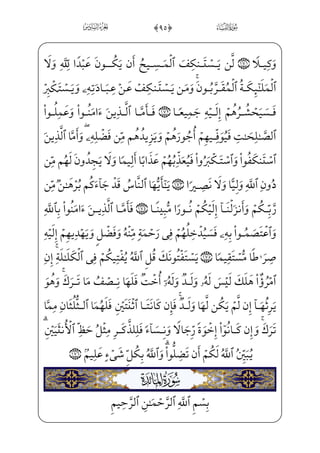 الجزء السادس ﴿٩٥﴾ سورة النساء
وَكِيلًا ۝ لَّن يَسْتَنكِفَ الْمَسِيحُ أَن يَكُونَ عَبْدًا لِّلَّهِ وَلَا
الْمَلَائِكَةُ الْمُقَرَّبُونَ ۚ وَمَن يَسْتَنكِفْ عَنْ عِبَادَتِهِ وَيَسْتَكْبِرْ
فَسَيَحْشُرُهُمْ إِلَيْهِ جَمِيعًا ۝ فَأَمَّا الَّذِينَ ءَامَنُوا وَعَمِلُوا
الصَّالِحَاتِ فَيُوَفِّيهِمْ أُجُورَهُمْ وَيَزِيدُهُم مِّن فَضْلِهِ ۖ وَأَمَّا الَّذِينَ
اسْتَنكَفُوا وَاسْتَكْبَرُوا فَيُعَذِّبُهُمْ عَذَابًا أَلِيمًا وَلَا يَجِدُونَ لَهُم مِّن
دُونِ اللَّهِ وَلِيًّا وَلَا نَصِيرًا ۝ يَا أَيُّهَا النَّاسُ قَدْ جَاءَكُم بُرْهَانٌ مِّن
رَّبِّكُمْ وَأَنزَلْنَا إِلَيْكُمْ نُورًا مُّبِينًا ۝ فَأَمَّا الَّذِينَ ءَامَنُوا بِاللَّهِ
وَاعْتَصَمُوا بِهِ فَسَيُدْخِلُهُمْ فِي رَحْمَةٍ مِّنْهُ وَفَضْلٍ وَيَهْدِيهِمْ إِلَيْهِ
صِرَاطًا مُّسْتَقِيمًا ۝ يَسْتَفْتُونَكَ قُلِ اللَّهُ يُفْتِيكُمْ فِي الْكَلَالَةِ ۚ إِنِ
امْرُؤٌا هَلَكَ لَيْسَ لَهُ وَلَدٌ وَلَهُ أُخْتٌ فَلَهَا نِصْفُ مَا تَرَكَ ۚ وَهُوَ
يَرِثُهَا إِن لَّمْ يَكُن لَّهَا وَلَدٌ ۚ فَإِن كَانَتَا اثْنَتَيْنِ فَلَهُمَا الثُّلُثَانِ مِمَّا
تَرَكَ ۚ وَإِن كَانُوا إِخْوَةً رِّجَالًا وَنِسَاءً فَلِلذَّكَرِ مِثْلُ حَظِّ الْأُنثَيَيْنِ ۗ
يُبَيِّنُ اللَّهُ لَكُمْ أَن تَضِلُّوا ۗ وَاللَّهُ بِكُلِّ شَيْءٍ عَلِيمٌ ۝
سورة المائدة
بِسْمِ اللَّهِ الرَّحْمَٰنِ الرَّحِيمِ